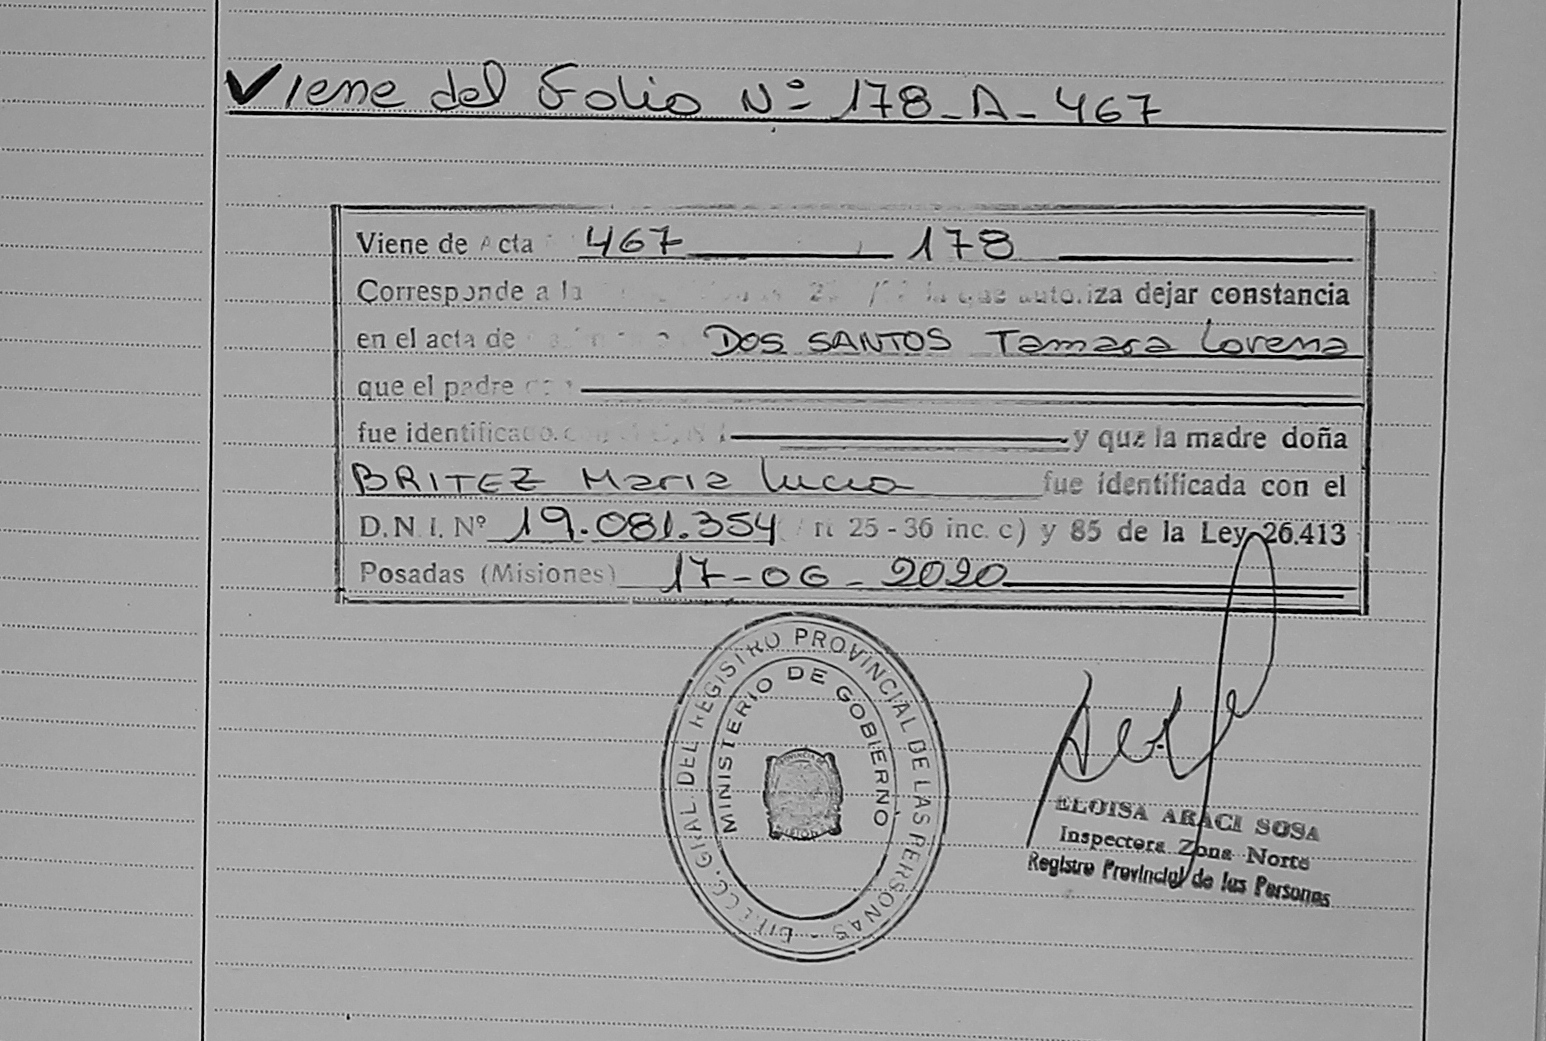 Viene del Folio Nº 178-A-467
Viene de Acta 467 178
Corresponde a la que autoriza dejar constancia
en el acta de DOS SANTOS Tamara Lorena
que el padre
fue identificado y que la madre doña
BRITEZ Maria Lucia fue identificada con el
D.N.I. Nº 19.081.354 25-36 inc. c) y 85 de la Ley 26.413
Posadas (Misiones) 17-06-2020
GRAL. DEL REGISTRO PROVINCIAL DE LAS PERSONAS
MINISTERIO DE GOBIERNO
ELOISA ARACI SOSA
Inspectora Zona Norte
Registro Provincial de las Personas